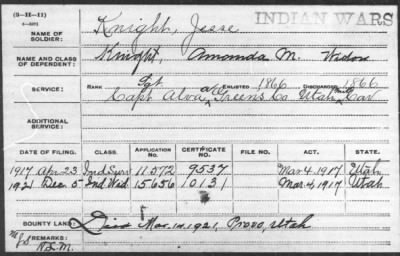 (3-II-11)
INDIAN WARS
NAME OF SOLDIER: Knight, Jesse
NAME AND CLASS OF DEPENDENT: Knight, Amanda M. Widow
SERVICE: RANK Sgt ENLISTED 1866 DISCHARGED 1866
Capt Alva Greens Co Utah Cav
ADDITIONAL SERVICE:
DATE OF FILING. CLASS. APPLICATION NO. CERTIFICATE NO. FILE NO. ACT. STATE.
1917 Apr 23 Ind Surv 11572 9537 Mar 4 1917 Utah
1921 Dec 5 Ind Wid 15656 10131 Mar 4, 1917 Utah
BOUNTY LAND: Died Mar. 14, 1921, Provo, Utah
REMARKS: